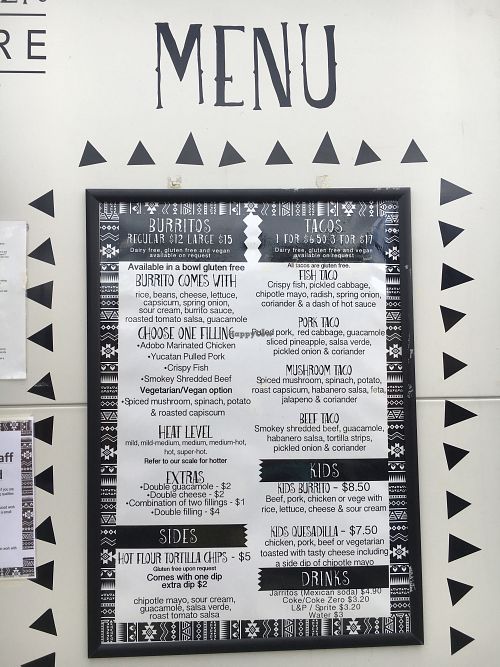 RE
MENU
BURRITOS
REGULAR $12 LARGE $15
Dairy free, gluten free and vegan
available on request
Available in a bowl gluten free
BURRITO COMES WITH
rice, beans, cheese, lettuce,
capsicum, spring onion,
sour cream, burrito sauce,
roasted tomato salsa, guacamole
CHOOSE ONE FILLING
•Adobo Marinated Chicken
•Yucatan Pulled Pork
•Crispy Fish
•Smokey Shredded Beef
Vegetarian/Vegan option
•Spiced mushroom, spinach, potato
& roasted capiscum
HEAT LEVEL
mild, mild-medium, medium, medium-hot,
hot, super-hot.
Refer to our scale for hotter
EXTRAS
•Double guacamole - $2
•Double cheese - $2
•Combination of two fillings - $1
•Double filling - $4
SIDES
HOT FLOUR TORTILLA CHIPS - $5
Gluten free upon request
Comes with one dip
extra dip $2
chipotle mayo, sour cream,
guacamole, salsa verde,
roast tomato salsa
TACOS
1 FOR $6.50 3 FOR $17
Dairy free, gluten free and vegan
available on request
All tacos are gluten free.
FISH TACO
Crispy fish, pickled cabbage,
chipotle mayo, radish, spring onion,
coriander & a dash of hot sauce
PORK TACO
Pulled pork, red cabbage, guacamole,
sliced pineapple, salsa verde,
pickled onion & coriander
MUSHROOM TACO
Spiced mushroom, spinach, potato,
roast capsicum, habanero salsa, feta,
jalapeno & coriander
BEEF TACO
Smokey shredded beef, guacamole,
habanero salsa, tortilla strips,
pickled onion & coriander
KIDS
KIDS BURRITO - $8.50
Beef, pork, chicken or vege with
rice, lettuce, cheese & sour cream
KIDS QUESADILLA - $7.50
chicken, pork, beef or vegetarian
toasted with tasty cheese including
a side dip of chipotle mayo
DRINKS
Jarritos (Mexican soda) $4.90
Coke/Coke Zero $3.20
L&P / Sprite $3.20
Water $3
HappyCow